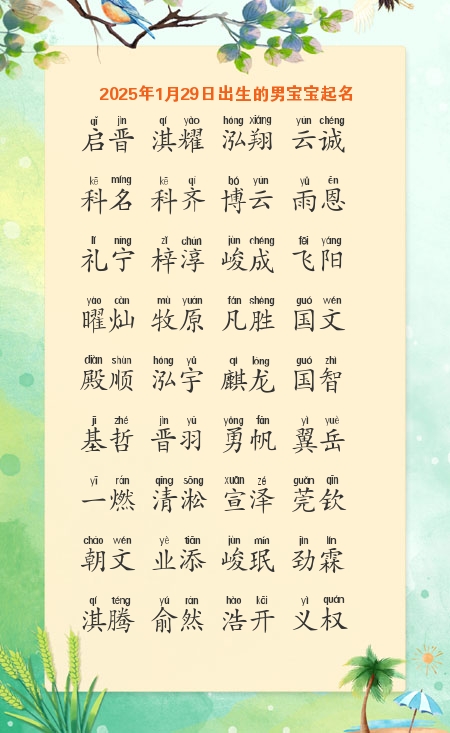 2025年1月29日出生的男宝宝起名
qǐ jìn qí yào hóng xiáng yún chéng
启晋 淇耀 泓翔 云诚
kē míng kē qí bó yún yǔ ēn
科名 科齐 博云 雨恩
lǐ níng zǐ chún jùn chéng fēi yáng
礼宁 梓淳 峻成 飞阳
yào càn mù yuán fán shèng guó wén
曜灿 牧原 凡胜 国文
diàn shùn hóng yǔ qí lóng guó zhì
殿顺 泓宇 麒龙 国智
jī zhé jìn yǔ yǒng fān yì yuè
基哲 晋羽 勇帆 翼岳
yī rán qīng sōng xuān zé guǎn qīn
一燃 清淞 宣泽 莞钦
cháo wén yè tiān jùn mín jìn lín
朝文 业添 峻珉 劲霖
qí téng yú rán hào kāi yì quán
淇腾 俞然 浩开 义权